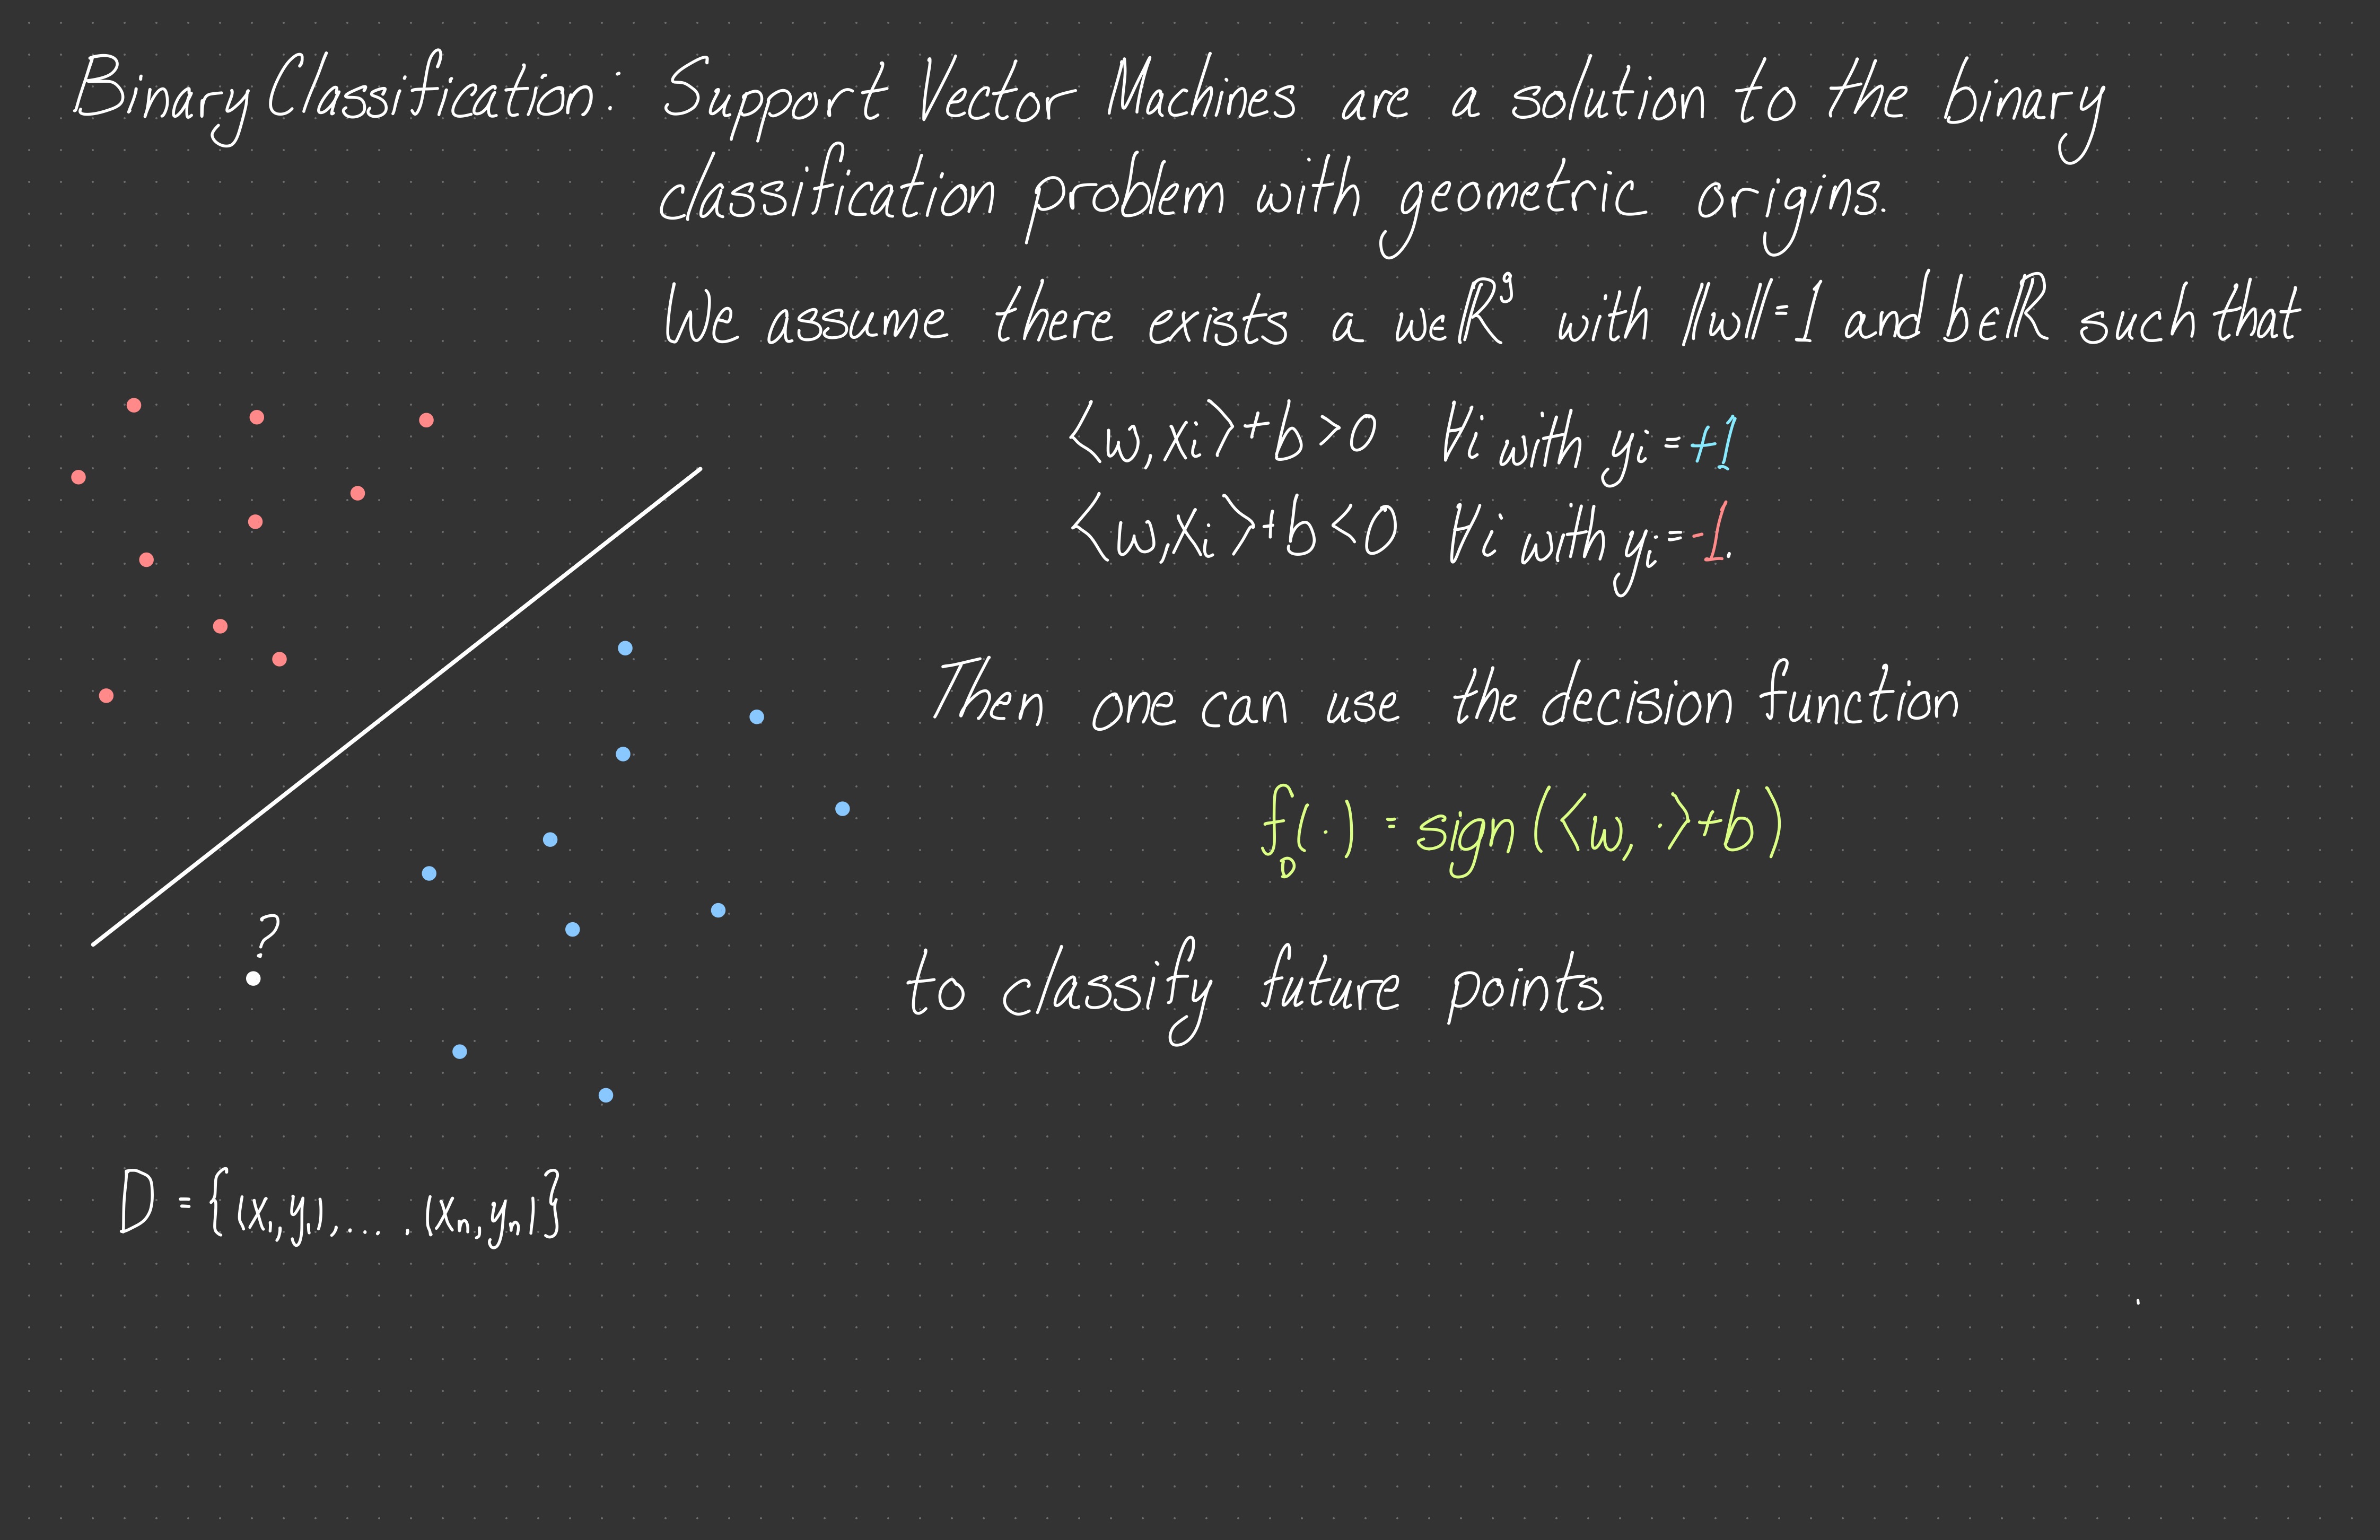 Binary Classification: Support Vector Machines are a solution to the binary
classification problem with geometric origins.
We assume there exists a w∈ℝᵍ with ||w||=1 and b∈ℝ such that
<w,xᵢ>+b>0 ∀i with yᵢ=+1
<w,xᵢ>+b<0 ∀i with yᵢ=-1.
Then one can use the decision function
f_D(·) = sign(<w,·>+b)
?
to classify future points.
D = {(x₁,y₁),...,(xₙ,yₙ)}